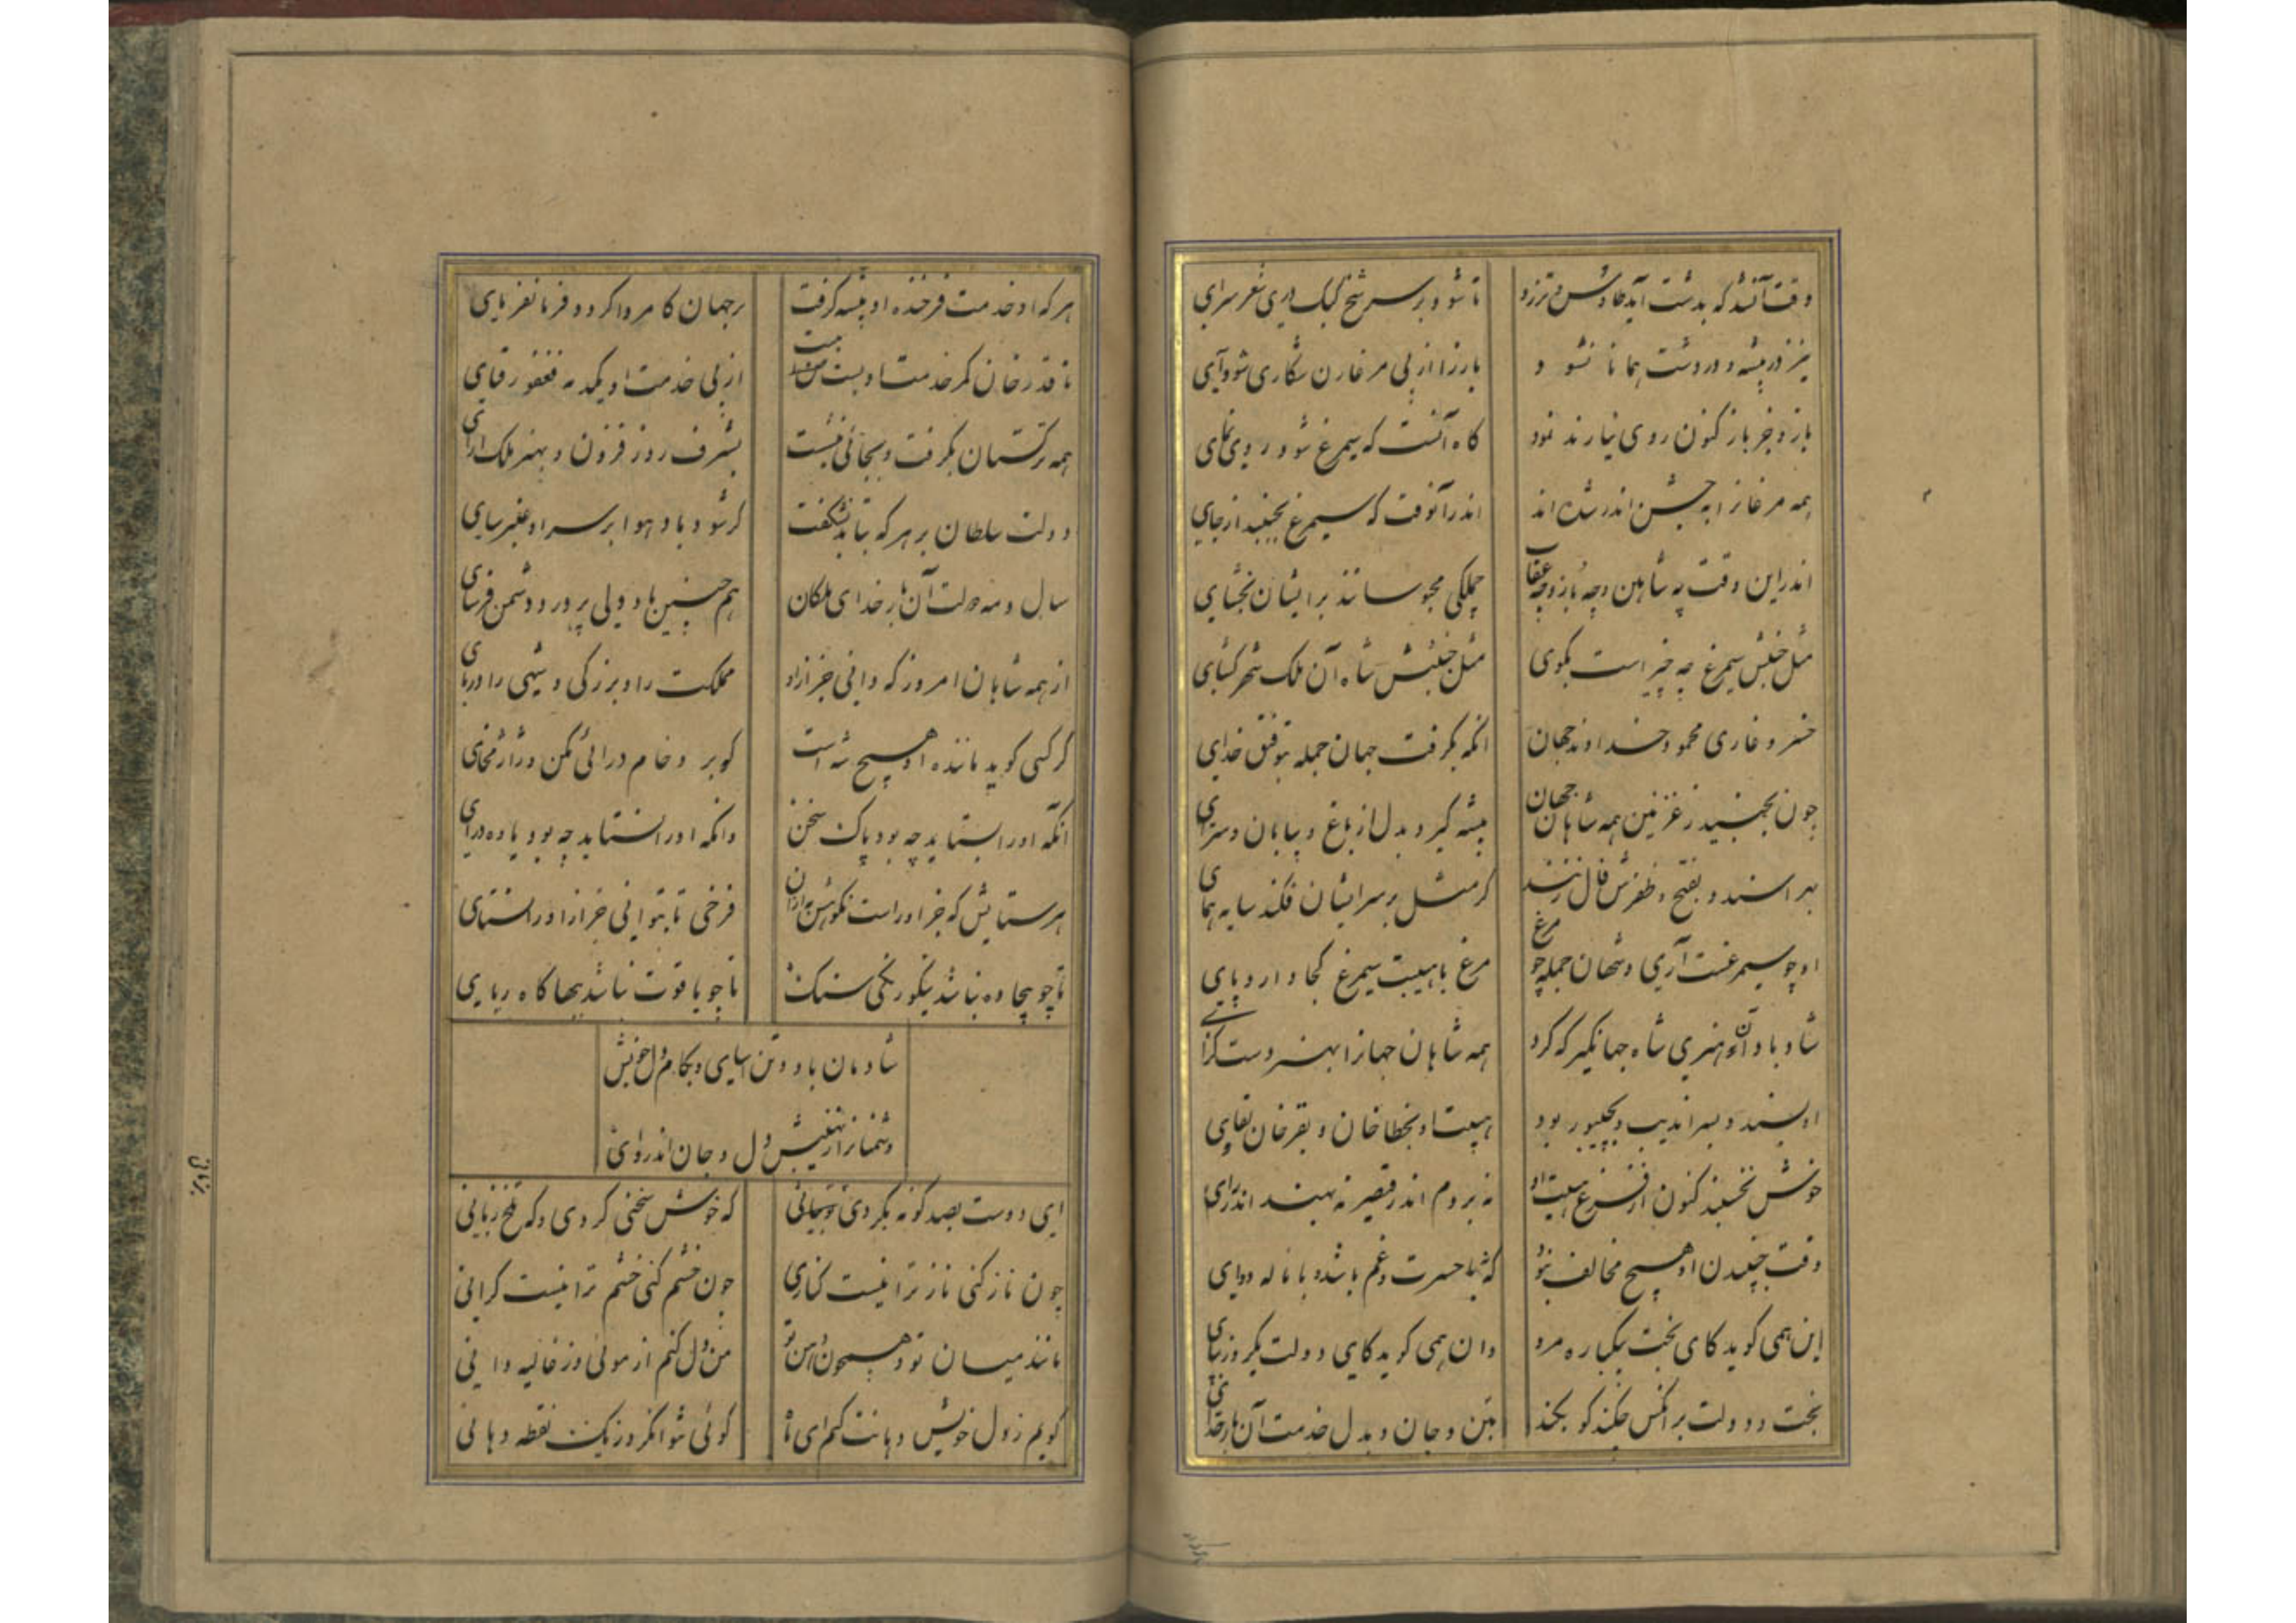 وقت آنشد که بدشت آید طاوس و تذرو
تا شود بر سر شخ کبک دری شعر سرای
خیز در بیشه و در دشت همانا نشود
باز را از پی مرغان شکاری شو وآی
باز و جز باز کنون روی نیارند نمود
کاه آنست که سیمرغ شود روی نمای
همه مرغانرا به جنبش اندر شده اند
اندر آنوقت که سیمرغ بجنبید از جای
اندراین وقت چه شاهین و چه باز و چه عقاب
جملگی محبوسانند برایشان بخشای
مثل جنبش سیمرغ چه چیز است بکوی
مثل جنبش شاه آن ملک شهر کشای
خسرو غازی محمود خداوند جهان
آنکه بکرفت جهان جمله بتوفیق خدای
چون بجنبید ز غزنین همه شاهان جهان
بیشه کیرد بدل از باغ و بیابان و سرای
بهراسند و بفتح و ظفرش فال زنند
کر مثل بر سر ایشان فکند سایه همای
او چو سیمرغست آری و شهان جمله چو مرغ
مرغ با هیبت سیمرغ کجا دارد پای
شاد باد آن هنری شاه جهانگیر که کرد
همه شاهان جهانرا بهنر دست کرای
او بهند و بسراندیب و بجیپور بود
هیبت او بخطا خان و بقرخان بقای
خوش نخسبند کنون از فزع هیبت او
نه بروم اندر قیصر نه بهند اندر رای
وقت جنبیدن او هیچ مخالف نبود
که نه با حسرت و غم باشد و با ناله و وای
این همی کوید کای بخت یکباره مرو
وان همی کوید کای دولت یکروز بپای
بخت و دولت بر آنکس چکند کو نکند
بتن و جان و بدل خدمت آن بار خدای
هر که او خدمت فرخنده او پیشه کرفت
بر جهان کامروا کردد و فرمانفرمای
تا قدرخان کمر خدمت او بست ببست
از پی خدمت او یکمه نه فغفور قبای
همه ترکستان بکرفت و بجائی بنشست
بشرف روز فزون و بهنر ملک آرای
دولت سلطان بر هر که بتابد نشگفت
کر شود باد هوا بر سر او عنبر سای
سال و مه دولت آن بار خدای ملکان
هم چنین باد ولی پرور و دشمن فرسای
از همه شاهان امروز که دانی جز از او
مملکت را و بزرکی و شهی را دربای
کر کسی کوید ماننده او هیچ شه است
کو برو خام درائی مکن و ژاژ مخای
آنکه او را بستاید چه بود پاک سخن
وانکه او را نستاید چه بود یاوه درای
هر ستایش که جز او راست نکوهش دان آن
فرخی تا بتوانی جز از او را مستای
تا چو بیجاده نباشد بنکورنکی سنک
تا چو یاقوت نباشد ببها کاه ربای
شادمان باد و تن آسای و بکام دل خویش
دشمنانرا ز نهیبش دل و جان اندروای
ای دوست بصد کونه بکردی تو بجائی
که خوش سخنی کردی و که تلخ زبانی
چون ناز کنی ناز ترا نیست کناری
چون خشم کنی خشم ترا نیست کرانی
مانند میان تو و همچون دهن تو
من دل کنم از موئی وز غالیه دانی
کویم ز دل خویش دهانت کنم ای ماه
کوئی نتوان کرد ز یک نقطه دهانی